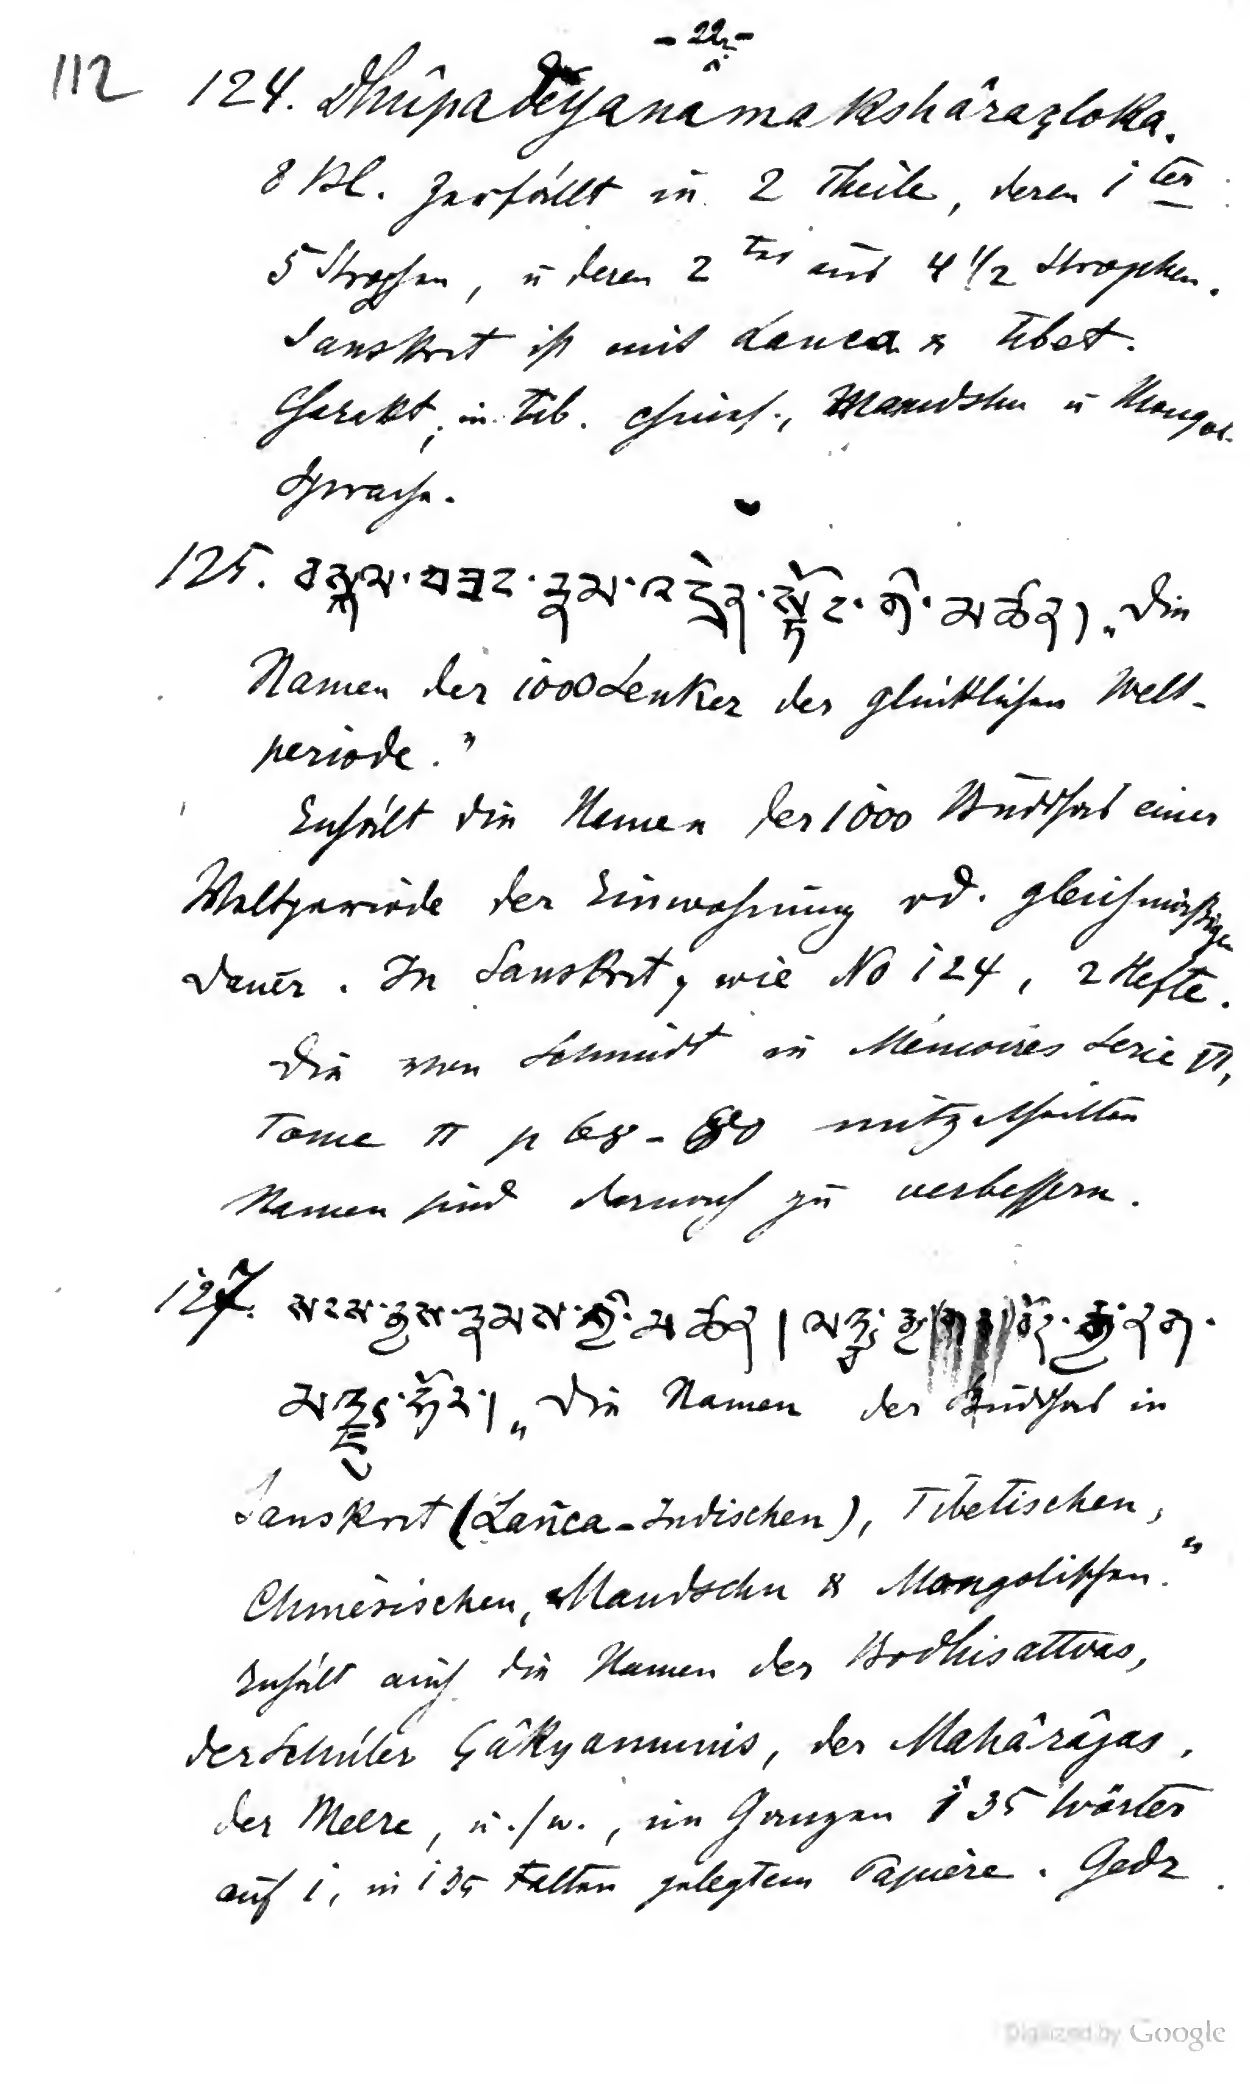 - 22. -
112 124. Dhûpadeyanamakshâraçloka.
8 Bl. Zerfällt in 2 Theile, deren 1ter
5 Strophen, u deren 2ter aus 4 1/2 Strophen.
Sanskrit ist mit Lanca & Tibet.
Charakt, in Tib. chines., Mandshu u Mongol.
Sprache.
125. བསྐལ་བཟང་རྣམ་འདྲེན་སྟོང་གི་མཚན། „Die
Namen der 1000 Lenker der glücklichen Welt-
periode."
Enhält die Namen der 1000 Buddhas einer
Weltperiode der Einwohnung od. gleichmäßigen
Dauer. In Sanskrit, wie No 124, 2 Hefte.
Die von Schmidt in Mémoires Serie VI,
Tome II p 68-80 mitgetheilten
Namen sind darnach zu verbessern.
127. སངས་རྒྱས་རྣམས་ཀྱི་མཚན།
„Die Namen der Buddhas in
Sanskrit (Lañca-Indischen), Tibetischen,
Chinesischen, Mandschu & Mongolischen."
Enhält auch die Namen der Bodhisattvas,
der Schüler Çâkyamunis, der Mahârâjas,
der Meere, u.s.w., im Ganzen 135 Wörter
auf 1, in 135 Falten gelegtem Papiere. Gedr
Digitized by Google